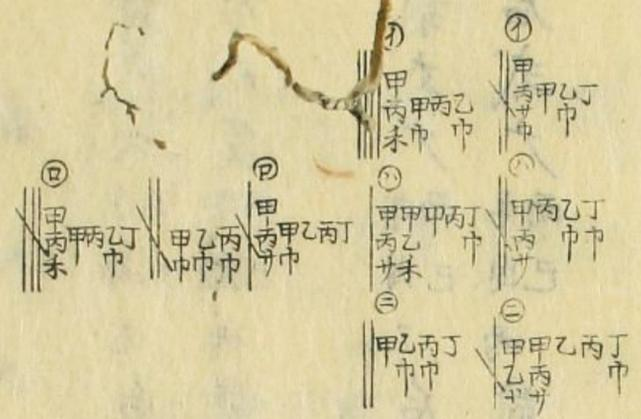 イ
甲丙サ巾 甲 乙巾 丁
ハ
甲丙サ 丙 乙巾 丁巾
ニ
甲乙 甲丙サ 乙 丙 丁巾
イ
甲丙未 甲巾 丙 乙巾
ハ
甲丙サ 甲乙未 甲 丙 丁巾
ニ
甲 乙巾 丙巾 丁
ロ
甲丙サ 甲巾 乙 丙 丁
甲巾 乙巾 丙巾
ロ
甲丙未 甲 丙 乙巾 丁